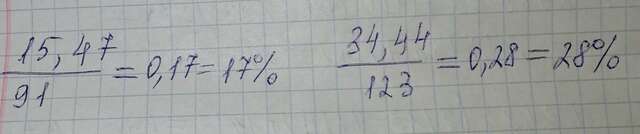 15,47/91 = 0,17 = 17% 34,44/123 = 0,28 = 28%